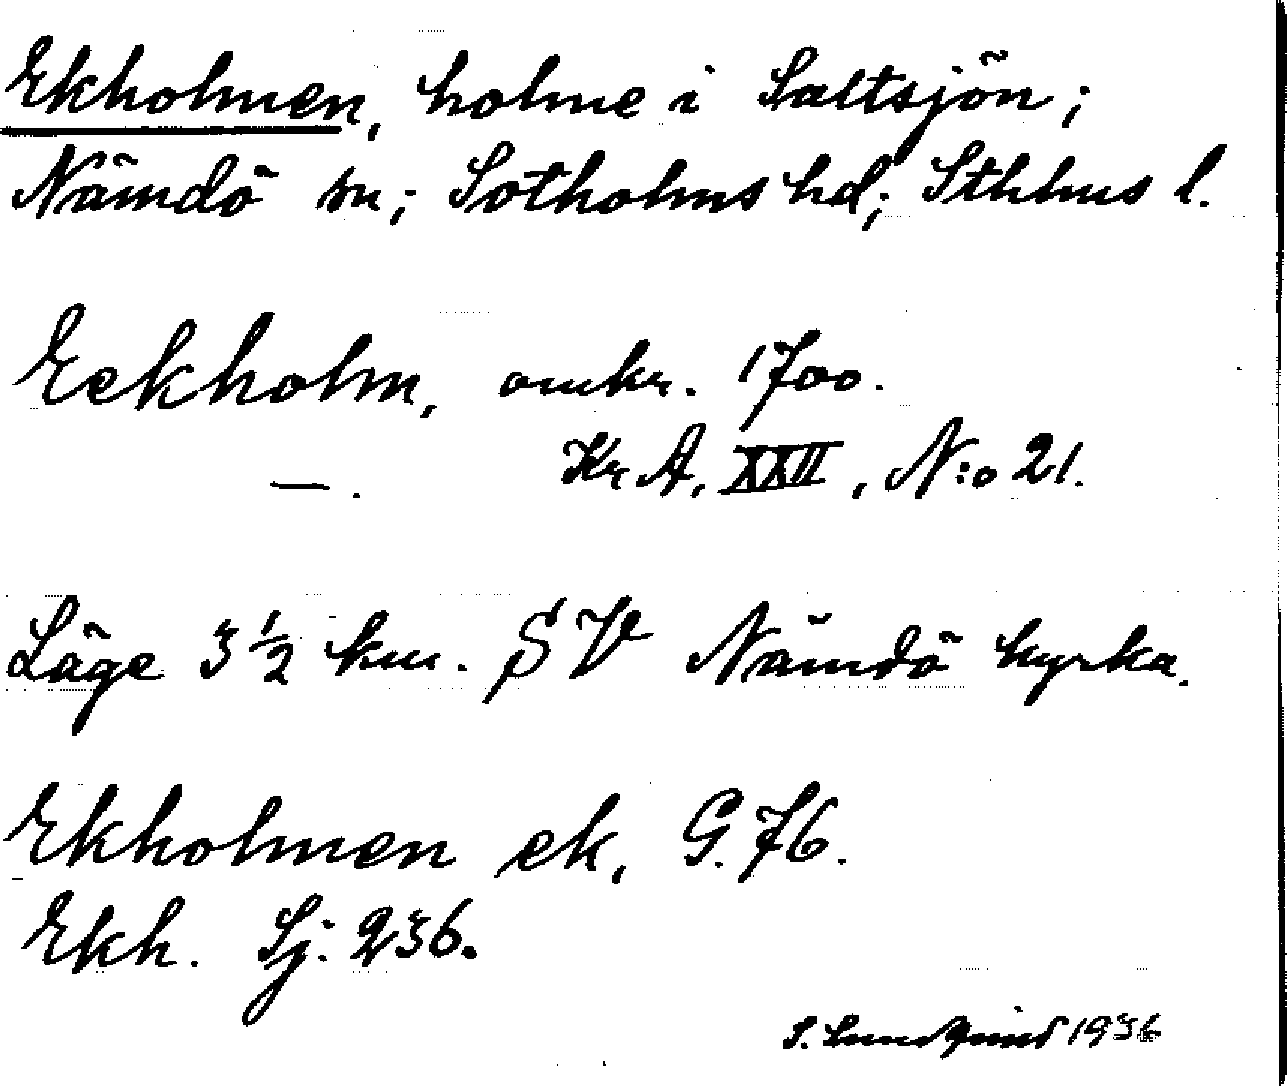 Ekholmen, holme i Saltsjön;
Nämdö sn; Sotholms hd; Sthlms l.
Eekholm, omkr. 1700.
—. Kr A, XXII, N:o 21.
Läge 3 1/2 km. SV Nämdö kyrka.
Ekholmen ek, G. 76.
Ekh. Sj. 236.
S. Lundqvist 1936